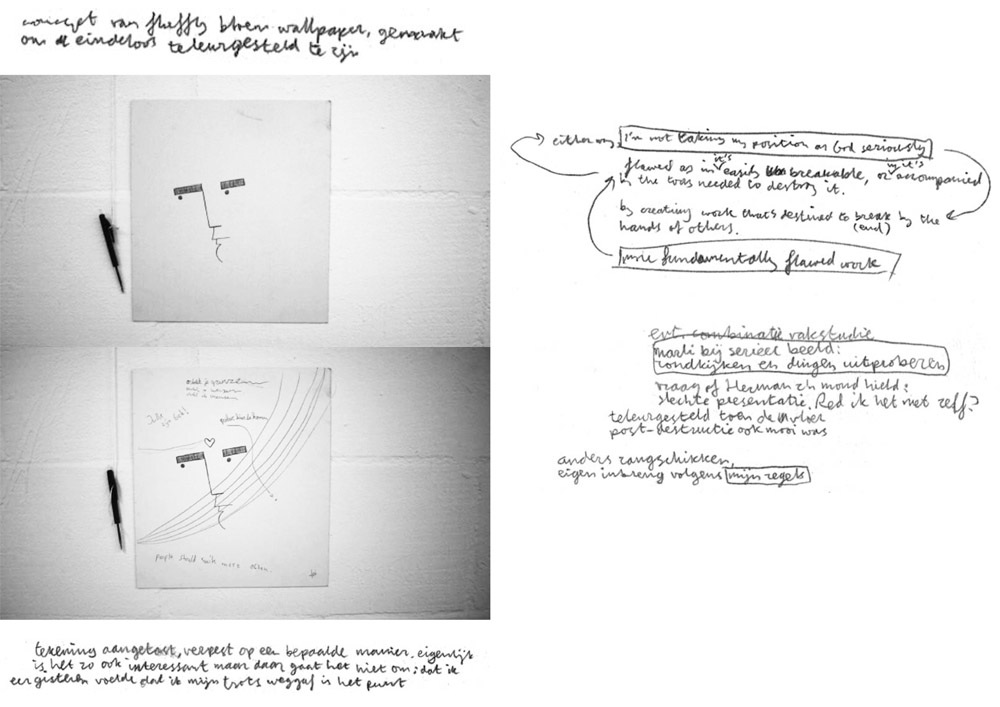 concept van fluffy bloem wallpaper, gemaakt
om eindeloos teleurgesteld te zijn
people should smile more often
tekening aangetast, verpest op een bepaalde manier. eigenlijk
is het zo ook interessant maar daar gaat het niet om; dat ik
eergisteren voelde dat ik mijn trots weggaf is het punt
either way, I'm not taking my position as God seriously
flawed as in it's easily breakable, or accompanied
by the tools needed to destroy it.
by creating work that's destined to break by the
(end)
hands of others.
more fundamentally flawed work
evt. combinatie vakstudie
marli bij serieel beeld:
rondkijken en dingen uitproberen
vraag of Herman zh mond hield:
slechte presentatie. Red ik het met zelf?
teleurgesteld toen de vloer
post-destructie ook mooi was
anders rangschikken,
eigen inbreng volgens mijn regels